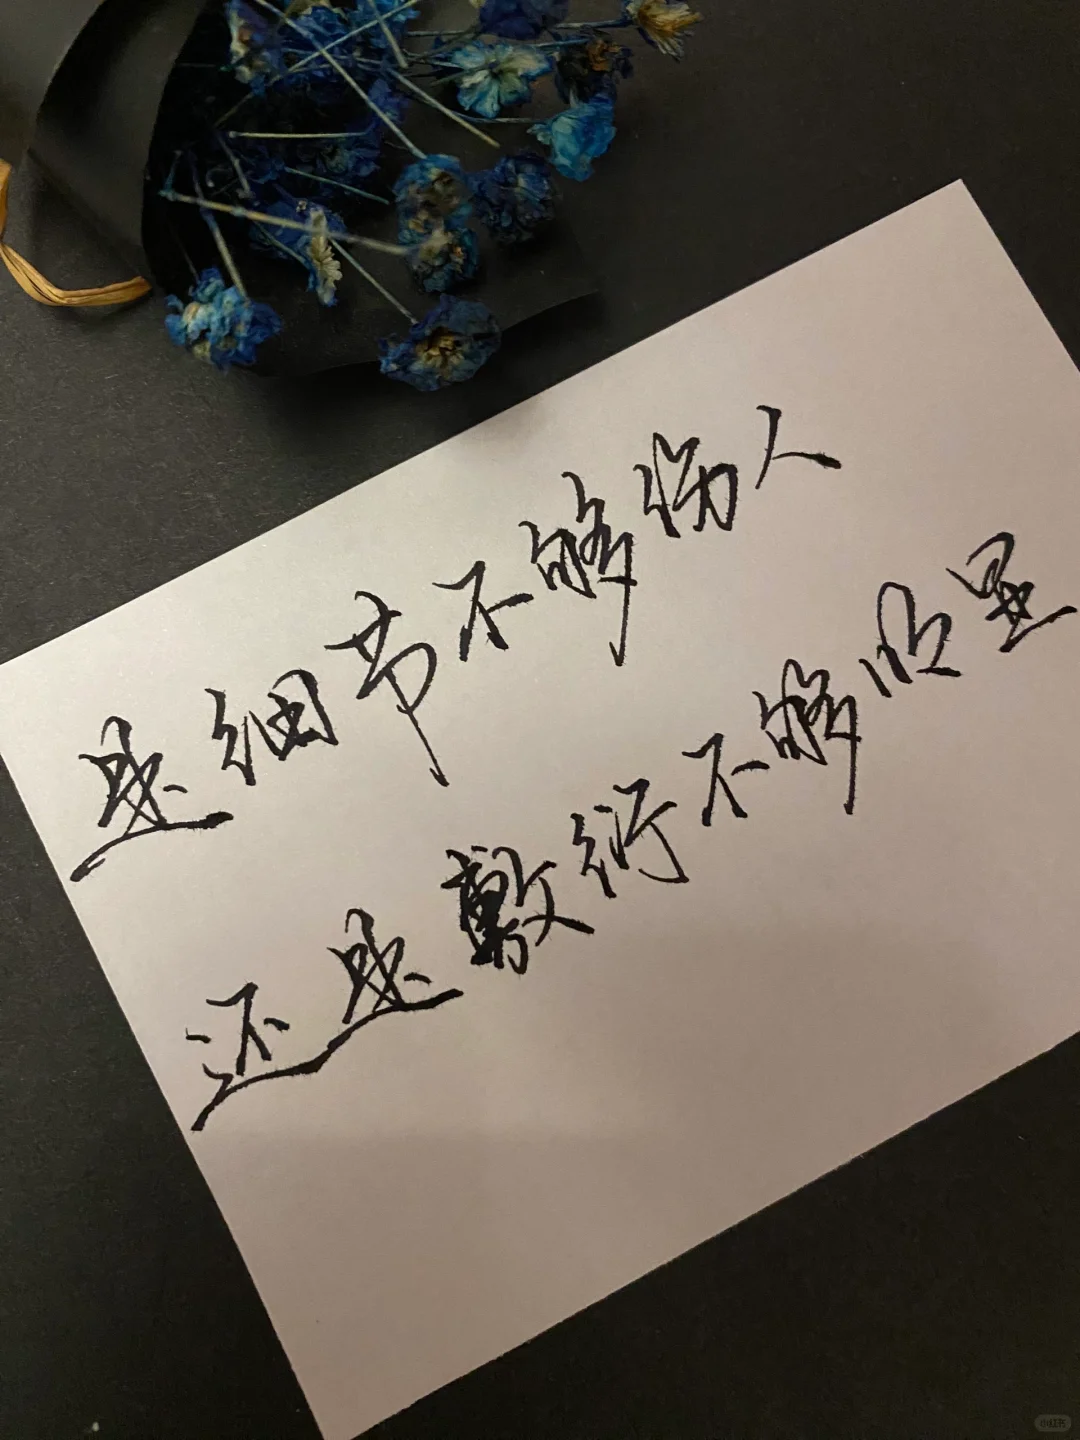 是细节不够伤人
还是敷衍不够明显